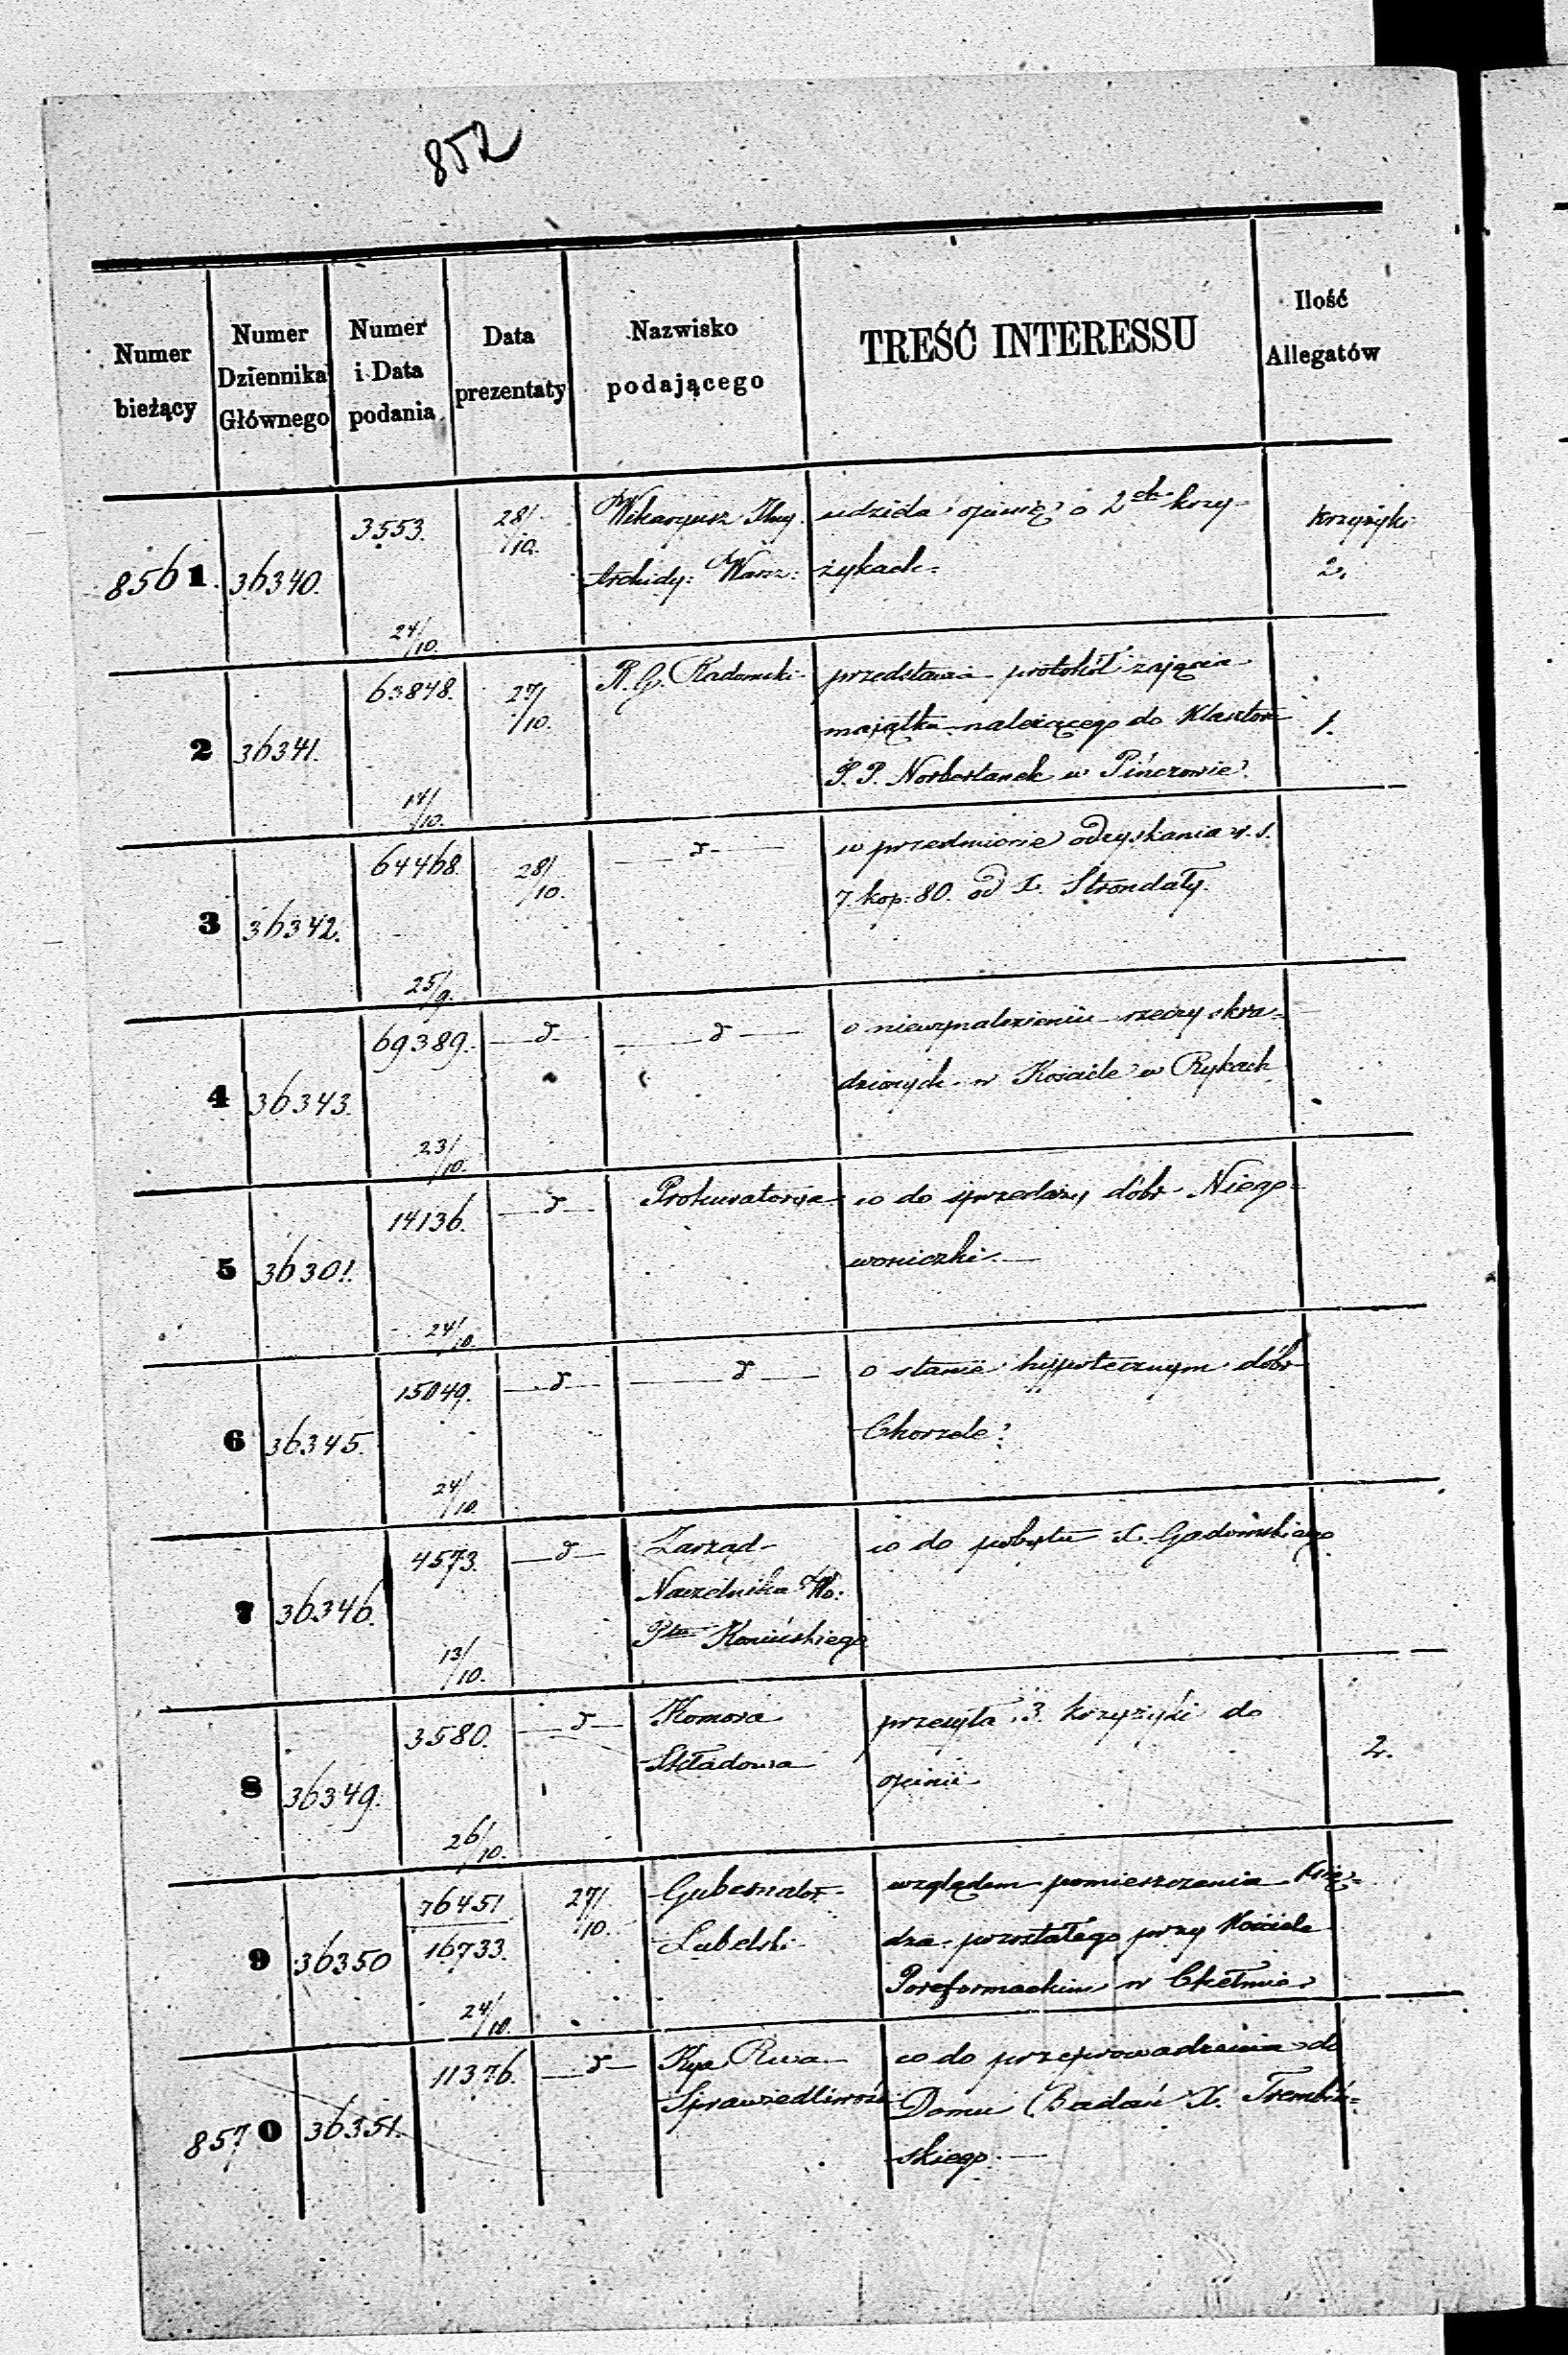 852
Numer bieżący
Numer Dziennika Głównego
Numer i Data podania
Data prezentaty
Nazwisko podającego
TREŚĆ INTERESSU
Ilość Allegatów
8561. 36340. 3553. 24/10. 28/10.
Wikaryusz Jlny.
Archidy: Warsz:
udziela opinię o 2ch krzy-
żykach.
krzyżyki
2.
2 36341. 63848. 14/10. 27/10.
R. G. Radomski
przedstawia protokół zajęcia
majątku należącego do Klasztoru
P. P. Norbertanek w Pińczowie
1.
3 36342. 64468. 25/9. 28/10.
— d —
w przedmiocie odzyskania r. s.
7. kop: 80. od X. Strondały.
4 36343. 69389. 23/10. — d —
— d —
o niewynalezieniu rzeczy skra-
dzionych w Kościele w Rykach
5 36301. 14136. 24/10. — d —
Prokuratorya
co do sprzedaży dóbr Niego-
woniczki. —
6 36345. 15049. 24/10. — d —
— d —
o stanie hypotecznym dóbr
Chorzele
7 36346. 4573. 13/10. — d —
Zarząd
Naczelnika Wo:
Ptu Konińskiego
co do pobytu X. Gadomskiego
8 36349. 3580. 26/10. — d —
Komora
Składowa
przesyła 3. krzyżyki do
opinii
2.
9 36350 76451 16733. 24/10. 27/10.
Gubernator
Lubelski
względem pomieszczenia Xię-
dza pozostałego przy Kościele
Poreformackim w Chełmie
8570 36351. 11376. — d —
Kya Rwa
Sprawiedliwości
co do przeprowadzenia do
Domu Badań X. Trembiń-
skiego. —